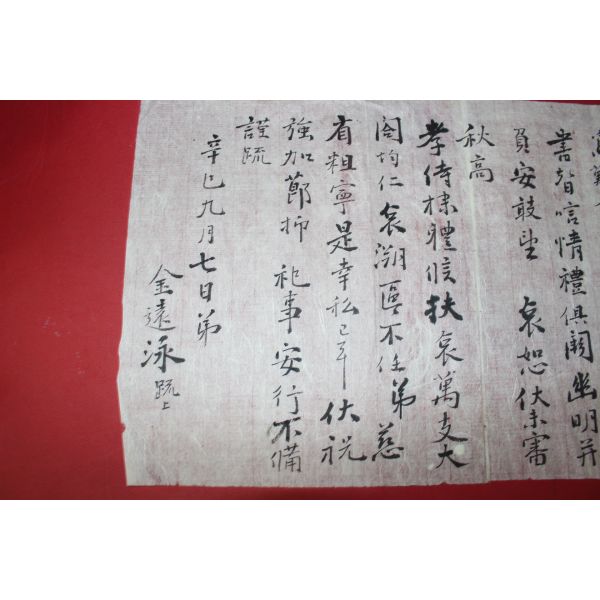 書替唁情禮俱闕幽明并
負安敢望 哀恕伏未審
秋高
孝侍棣體候扶 哀萬支大
閤均仁哀溯區不任弟慈
省粗寧是幸私已耳伏祝
強加節抑 祀事安行不備
謹疏
辛巳九月七日弟
金遠泳疏上